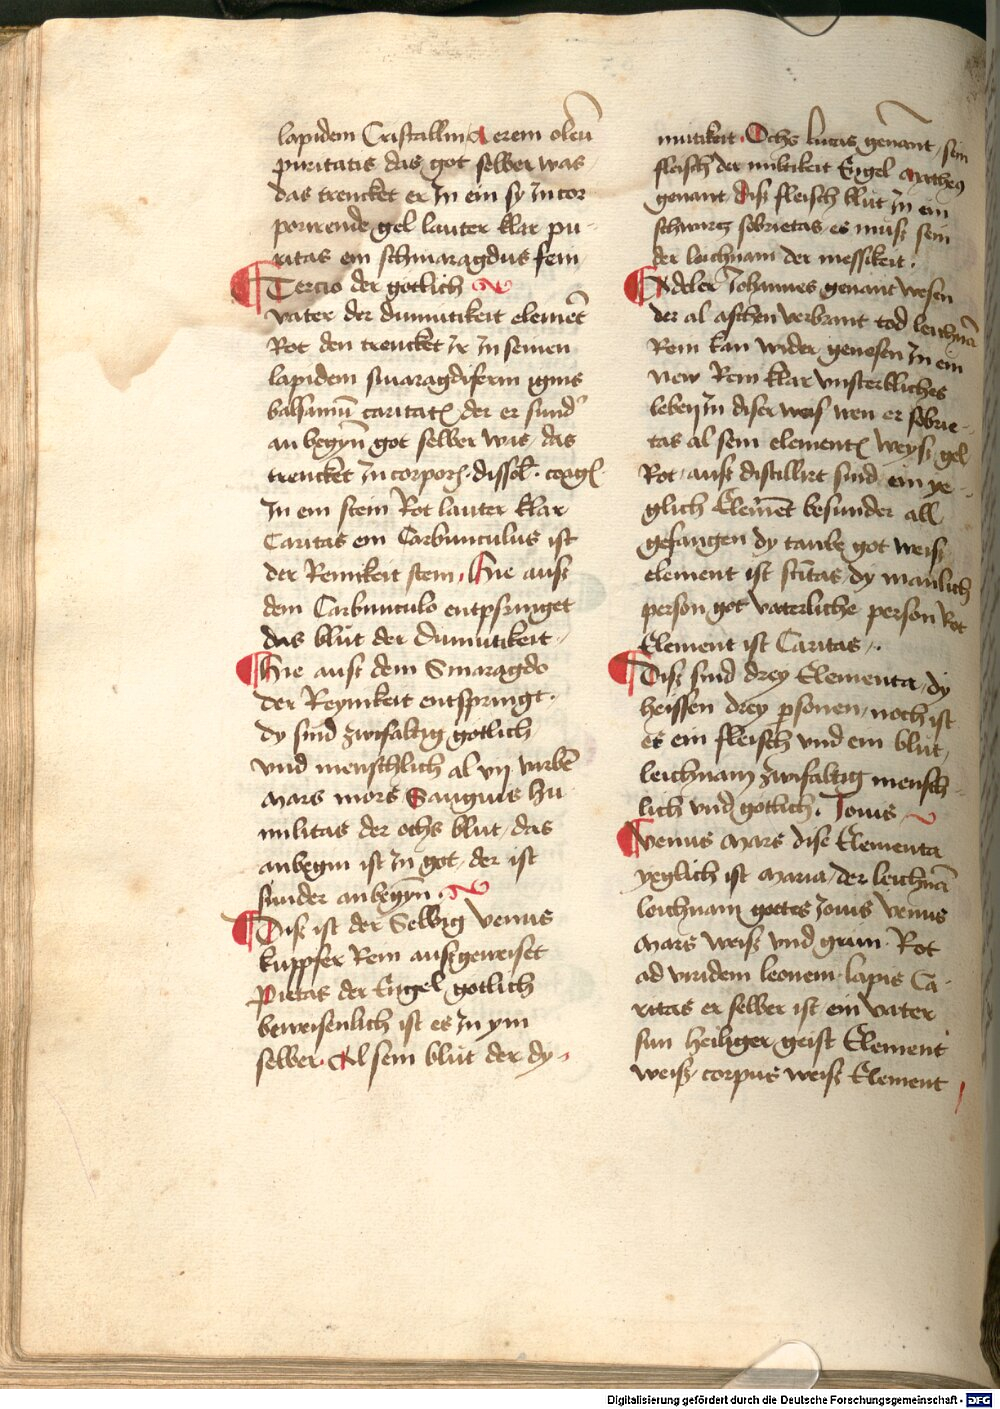 lapidem Cristallin Aerem oleū
puritatis das got selber was
das trencket er In ein sy Incor
porirende gel lauter klar pu-
ritas ein schmaragdus sein
Tercio der gotlich
vater der diumutikeit elemēt
Rot den trencket Ir In seinen
lapidem smaragdiferm ignis
balsamū caritatꝭ der er sund'
an begyn̄ got selber was, das
trencket Incorporꝭ. dissol̄. coagl̄
In ein stein Rot lauter klar
Caritas ein Carbunculus ist
der Reinikeit stein, Hie auß
dem Carbunculo entpsringet
das blut der diumutikeit
Hie auß dem Smaragdo
der Reynikeit entspringt.
dy sind zwifaltig gotlich
vnd menschlich al vij vrbē
Mars mors Sanguis hu
militas der ochs blut, das
anbegin ist In got, der ist
sunder anbegyn̄.
Diß ist der Selbig venus
kuppfer Rein außgeweiset
Pietas der Engel gotlich
beweisenlich ist es In ym
selber. Al sein blut der dy-
mutikeit. Ochs lucas genant, sein
fleisch der miltikeit Engel Matheus
genant diß fleisch blut In ein
schwartz sobrietas, es muß sein
der leichnam der messikeit.
Adeler Johannes genant wesen
der al aschen verbrant tod leichnā
Rein kan wider genesen In ein
new Rein klar vnsterbliches
leben In diser weis wen er sobrie-
tas al sein elementꝭ weyß gel
Rot, auß distillirt sind, ein ye-
glich Elemēt besunder all
gefangen dy taube got weiß
element ist sc̄itas, dy manlich
person got vaterliche person Rot
Element ist Caritas.
Diß sind drey Elementa, dy
heissen drey psonen, noch ist
es ein fleisch vnd ein blut,
leichnam zwifaltig mensch-
lich vnd gotlich. Jouis
venus Mars dise Elementa
yeglich ist Maria, der leichnā
leichnam gottes Jouis venus
Mars weiß vnd grun. Rot
ad viridem leonem. lapis Ca-
ritas er selber ist ein vater
sun heiliger geist Element
weiß, corpus weiß Element
Digitalisierung gefördert durch die Deutsche Forschungsgemeinschaft - DFG